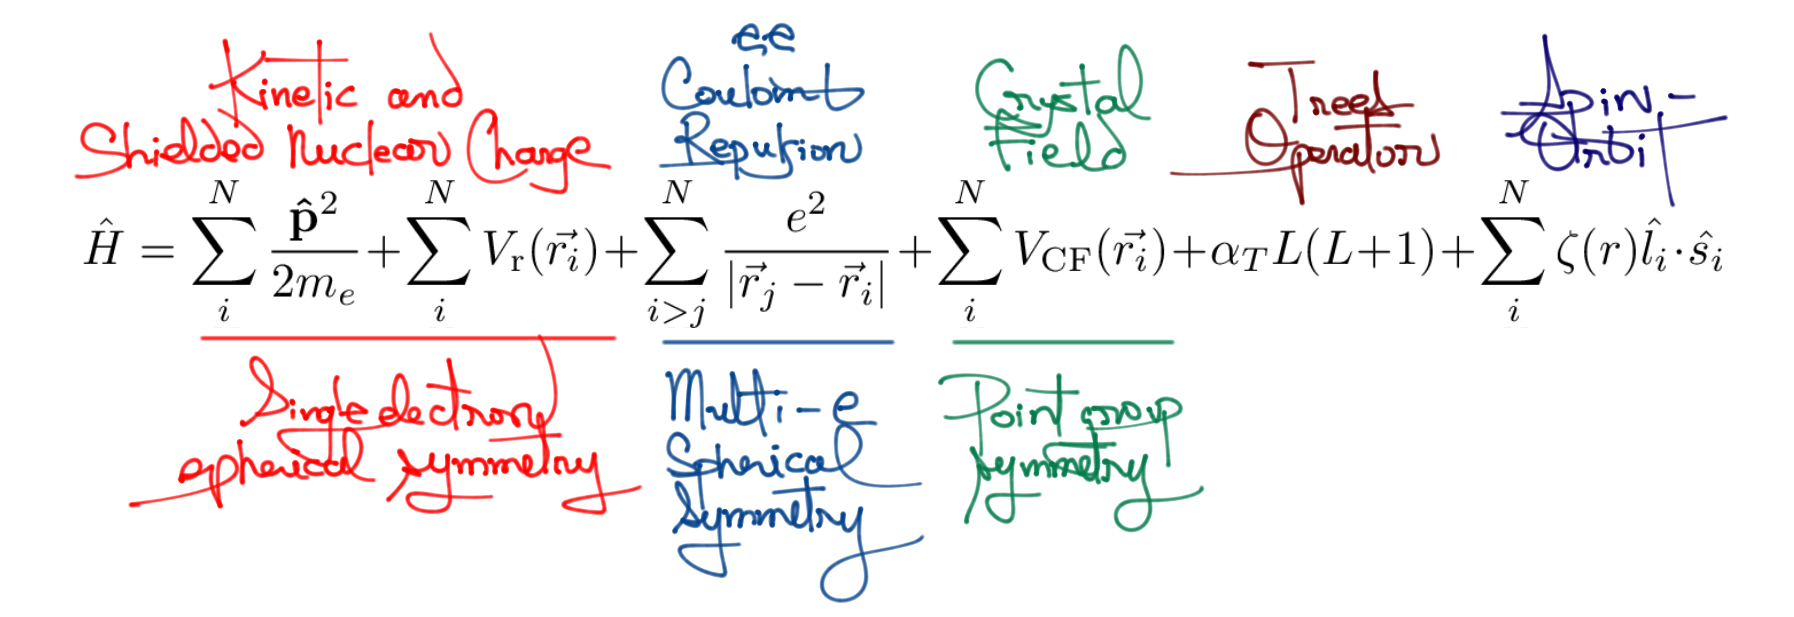 Kinetic and
Shielded Nuclear Charge
e-e
Coulomb
Repulsion
Crystal
Field
Trees
Operator
Spin-
Orbit
$\hat{H} = \sum_{i}^{N} \frac{\hat{\mathbf{p}}^2}{2m_e} + \sum_{i}^{N} V_{\mathrm{r}}(\vec{r_i}) + \sum_{i>j}^{N} \frac{e^2}{|\vec{r}_j - \vec{r}_i|} + \sum_{i}^{N} V_{\mathrm{CF}}(\vec{r_i}) + \alpha_T L(L+1) + \sum_{i}^{N} \zeta(r) \hat{l_i} \cdot \hat{s_i}$
Single electron
spherical symmetry
Multi-e
Spherical
Symmetry
Point group
symmetry